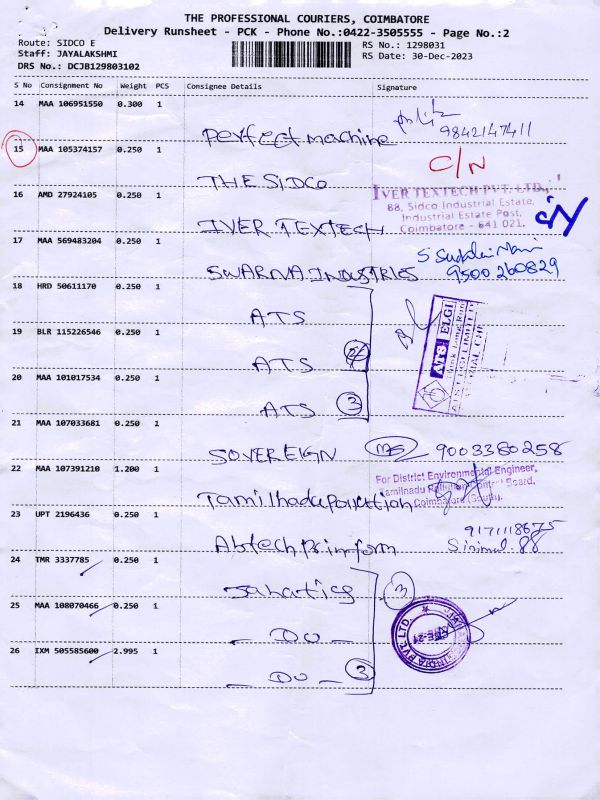 THE PROFESSIONAL COURIERS, COIMBATORE
Delivery Runsheet - PCK - Phone No.:0422-3505555 - Page No.:2
Route: SIDCO E
Staff: JAYALAKSHMI
DRS No.: DCJB129803102
RS No.: 1298031
RS Date: 30-Dec-2023
S No Consignment No Weight PCS Consignee Details Signature
14 MAA 106951550 0.300 1
Perfect machine
9842147411
15 MAA 105374157 0.250 1
THE SIDCO
C/N
16 AMD 27924105 0.250 1
IVER TEXTECH
IVER TEXTECH PVT. LTD.,
88, Sidco Industrial Estate,
Industrial Estate Post,
Coimbatore - 641 021.
17 MAA 569483204 0.250 1
SWARNA INDUSTRIES
9500260829
18 HRD 50611170 0.250 1
ATS
19 BLR 115226546 0.250 1
ATS
20 MAA 101017534 0.250 1
ATS 3
ATS ELGI
21 MAA 107033681 0.250 1
SOVEREIGN
9003380258
22 MAA 107391210 1.200 1
Tamilnadu pollution
For District Environmental Engineer,
Tamilnadu Pollution Control Board,
Coimbatore (South).
23 UPT 2196436 0.250 1
Abtech prinform
9171118675
24 TMR 3337785 0.250 1
Janatics
3
25 MAA 108070466 0.250 1
- DO -
26 IXM 505585600 2.995 1
- DO - 3